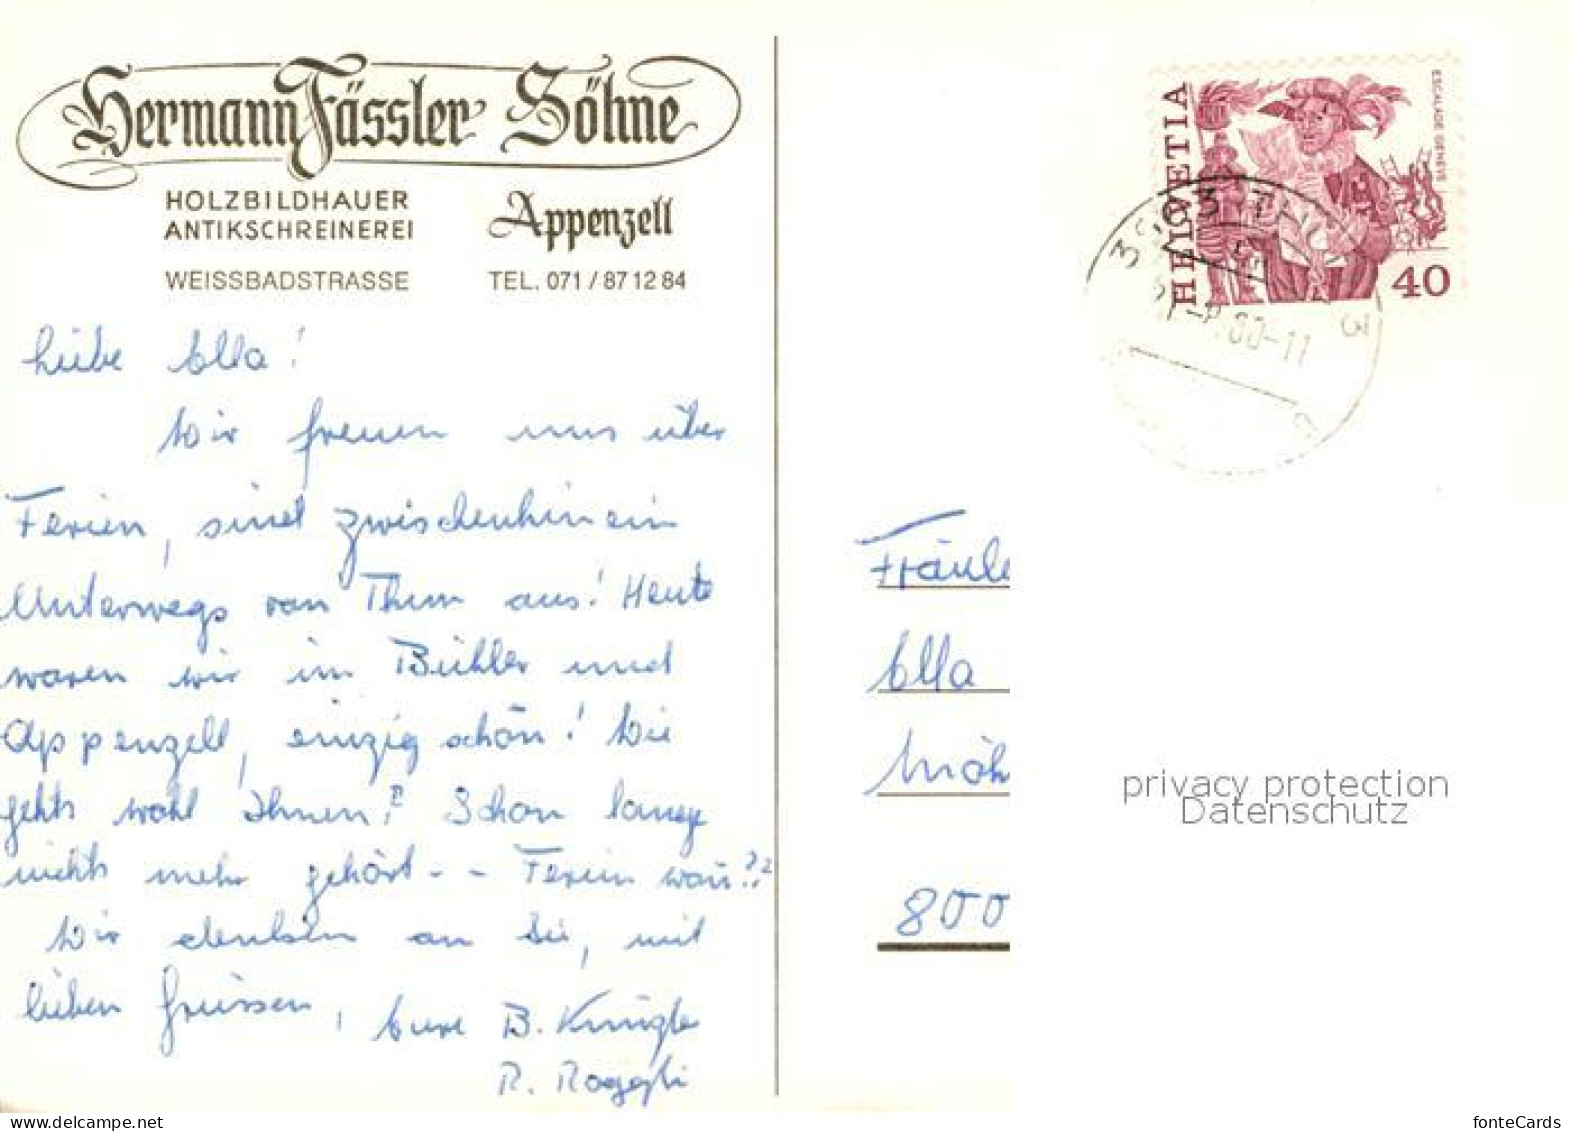 Hermann Fässler Söhne
HOLZBILDHAUER
ANTIKSCHREINEREI
Appenzell
WEISSBADSTRASSE TEL. 071 / 87 12 84
Liebe Ella!
Wir freuen uns über
Ferien, sind zwischenhinein
Unterwegs von Thun aus! Heute
waren wir im Bühler und
Appenzell, einzig schön! Wie
gehts wohl Ihnen? Schon lange
nichts mehr gehört - - Ferien wann??
Wir denken an Sie, mit
lieben Grüssen, Eure B. Künzle
R. Roggli
HELVETIA
ESCALADE GENÈVE
40
3603 THUN
80-11
3
Fräule
Ella
Möh
800
privacy protection
Datenschutz
www.delcampe.net
fonteCards